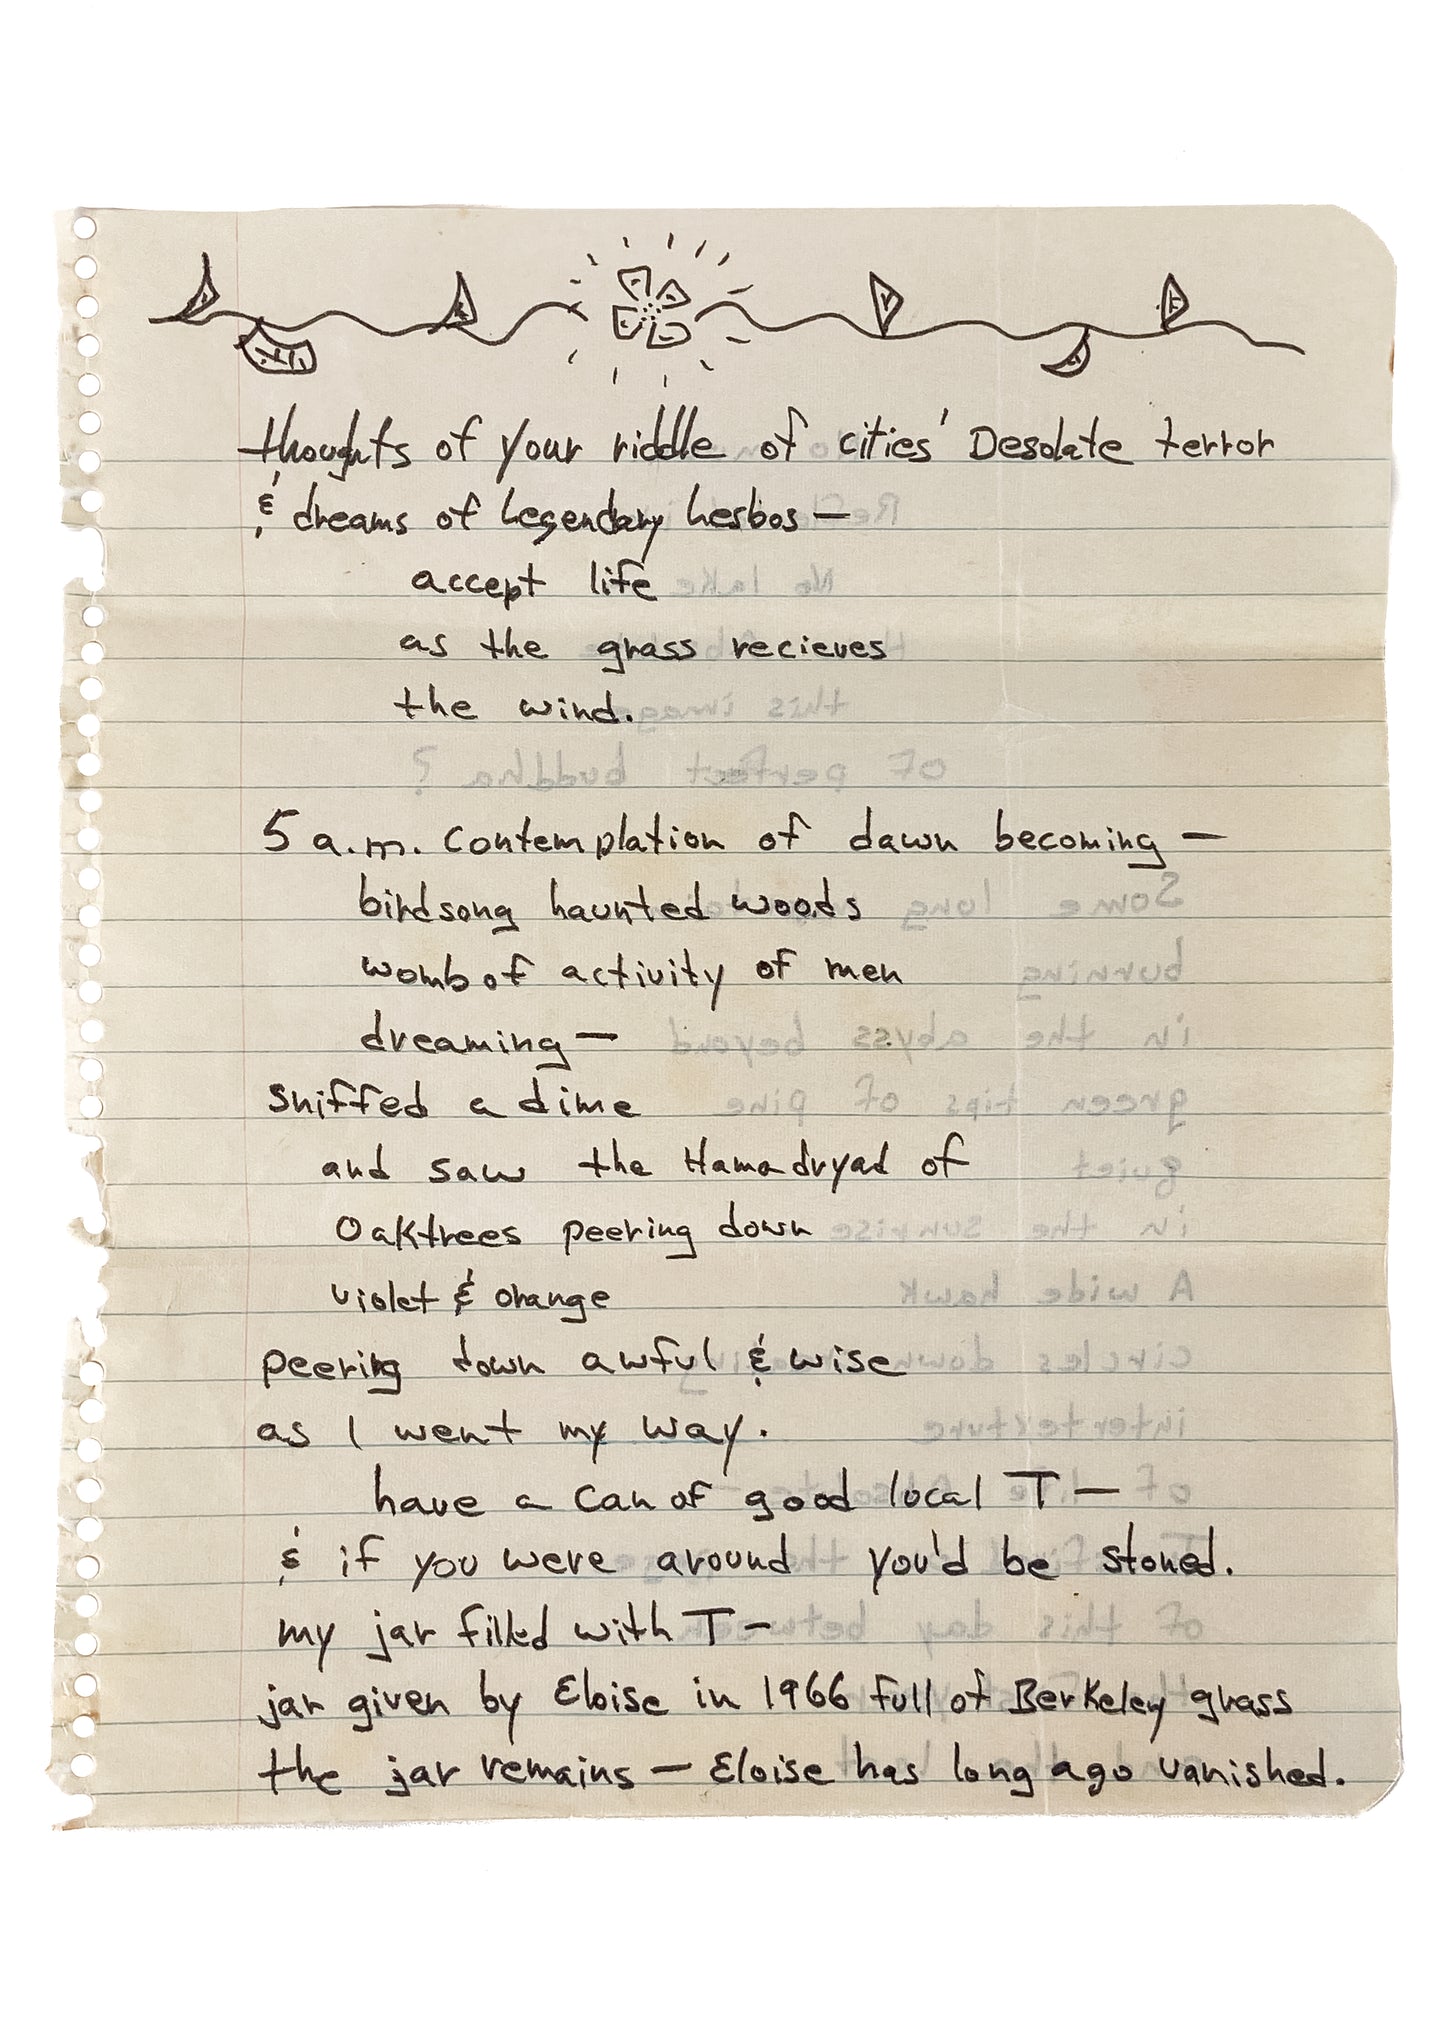 thoughts of your riddle of cities' Desolate terror
& dreams of legendary lesbos —
accept life
as the grass recieves
the wind.
5 a.m. contemplation of dawn becoming —
birdsong haunted woods
womb of activity of men
dreaming —
sniffed a dime
and saw the Hamadryad of
Oaktrees peering down
violet & orange
peering down awful & wise
as I went my way.
have a can of good local T —
& if you were around you'd be stoned.
my jar filled with T —
jar given by Eloise in 1966 full of Berkeley grass
the jar remains — Eloise has long ago vanished.